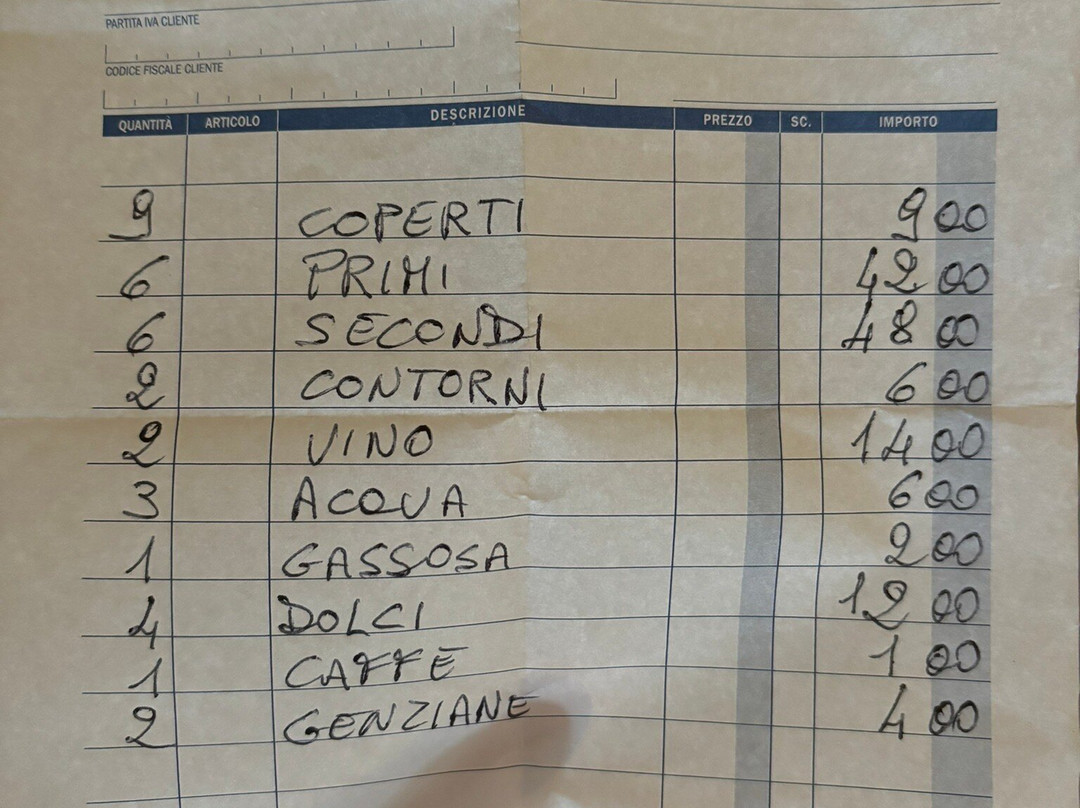 PARTITA IVA CLIENTE
CODICE FISCALE CLIENTE
QUANTITÀ ARTICOLO DESCRIZIONE PREZZO SC. IMPORTO
9 COPERTI 9 00
6 PRIMI 42 00
6 SECONDI 48 00
2 CONTORNI 6 00
2 VINO 14 00
3 ACQUA 6 00
1 GASSOSA 2 00
4 DOLCI 12 00
1 CAFFE 1 00
2 GENZIANE 4 00